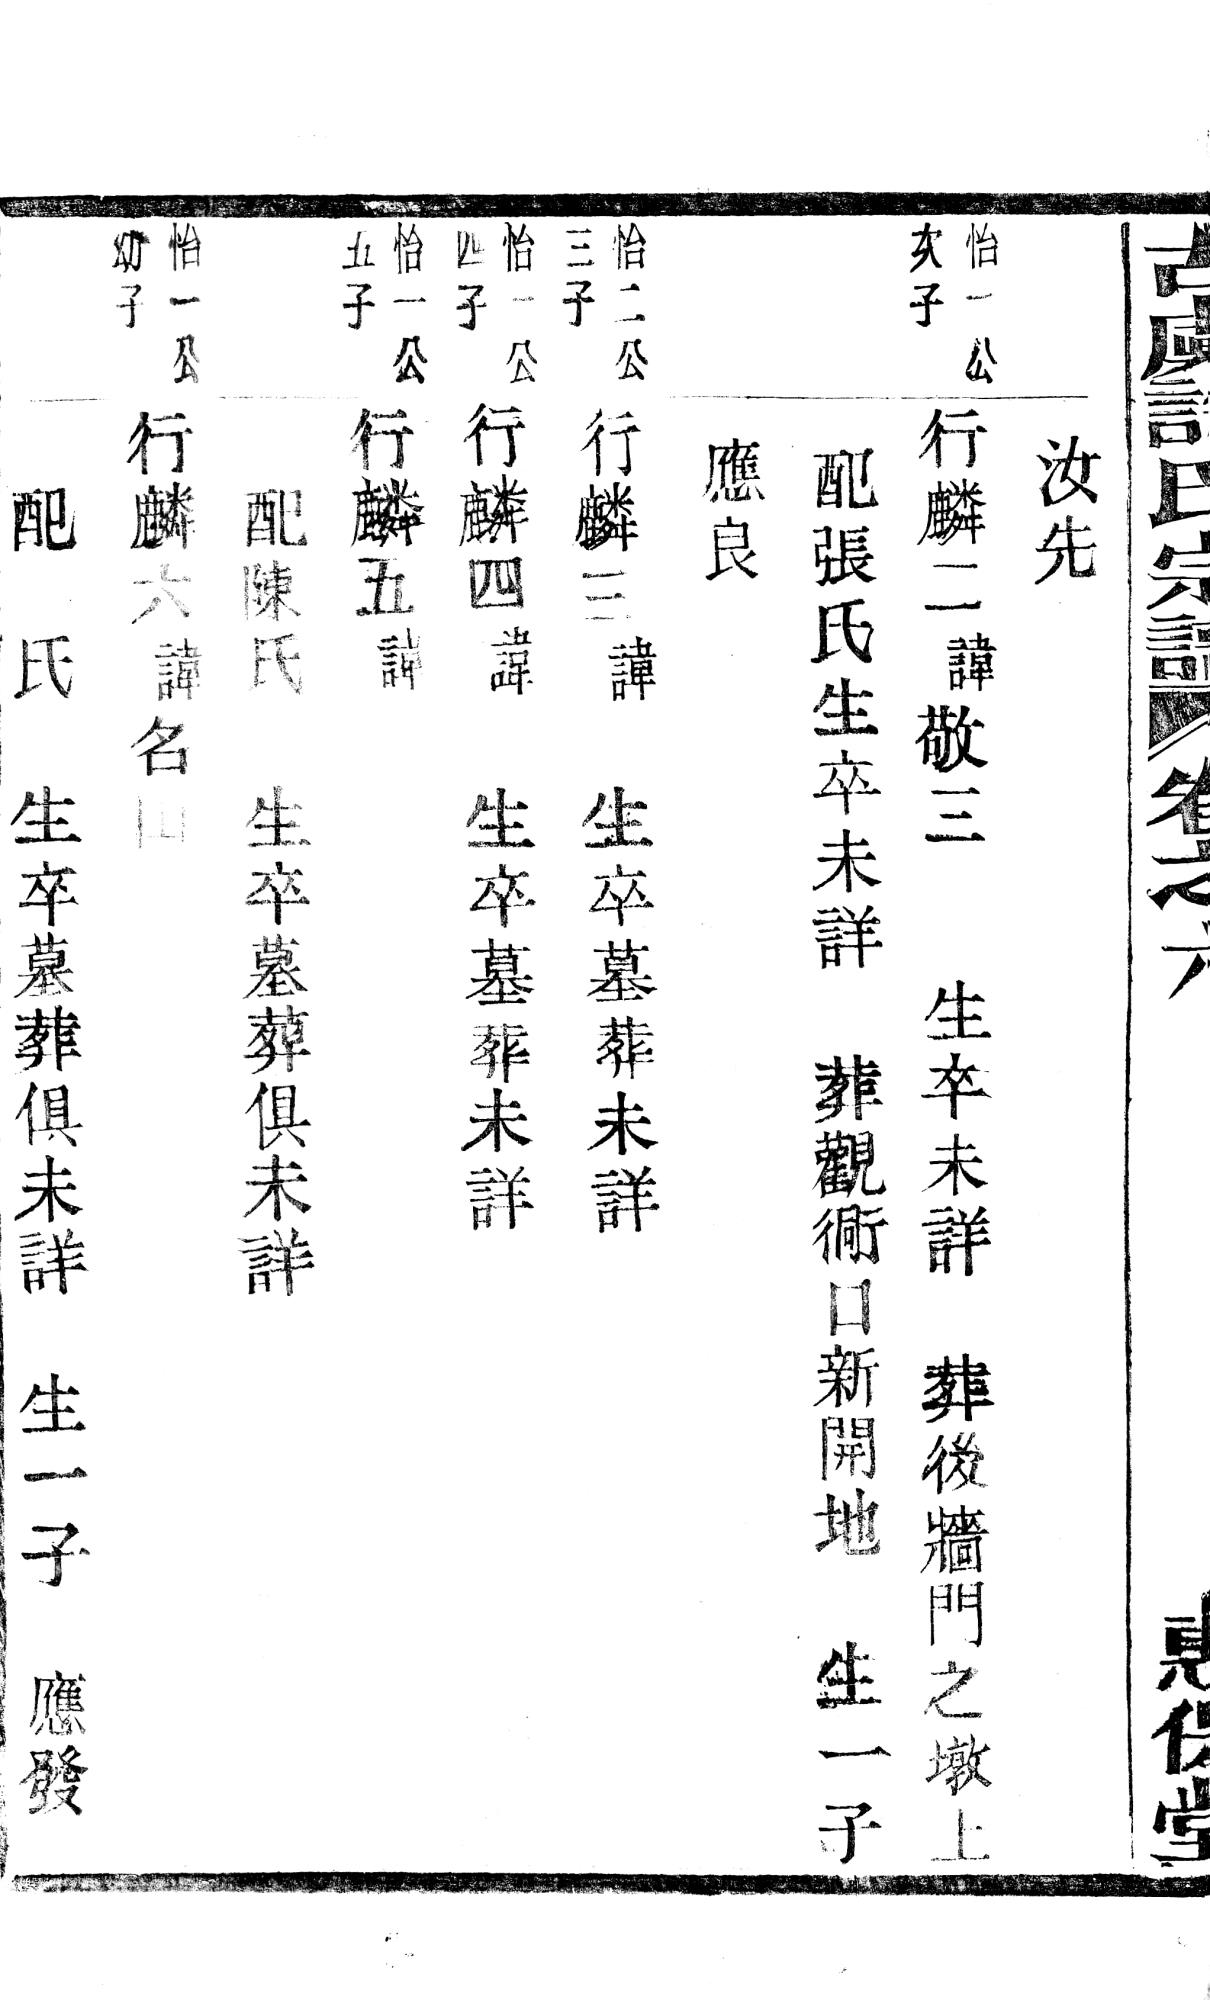 古虞許氏宗譜 卷之六 惠保堂
汝先
怡一公
次子
行麟二諱敬三 生卒未詳 葬後牆門之墩上
配張氏生卒未詳 葬觀衕口新開地 生一子
應良
怡二公
三子
行麟三諱 生卒墓葬未詳
怡一公
四子
行麟四諱 生卒墓葬未詳
怡一公
五子
行麟五諱
配陳氏 生卒墓葬俱未詳
怡一公
幼子
行麟六諱名
配 氏 生卒墓葬俱未詳 生一子 應發